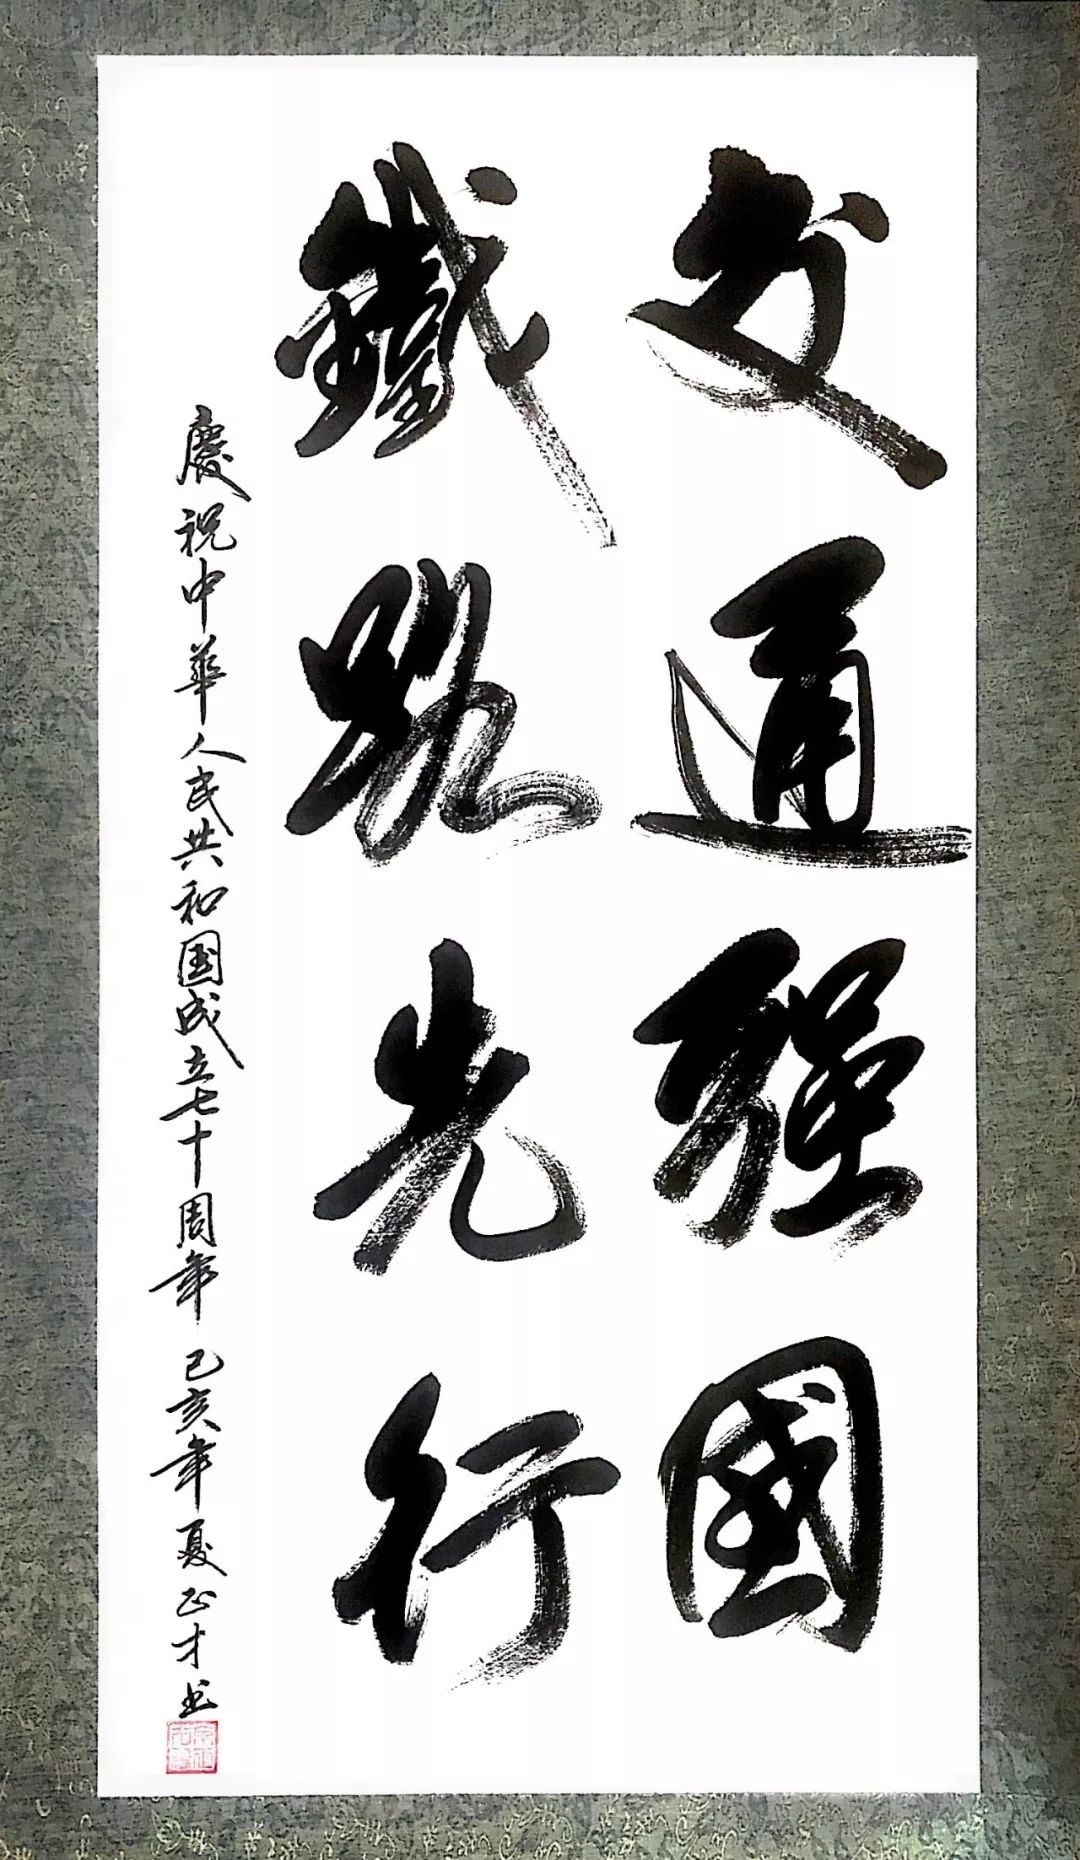 交通强國
鐵路先行
慶祝中華人民共和国成立七十周年 己亥年夏正才书